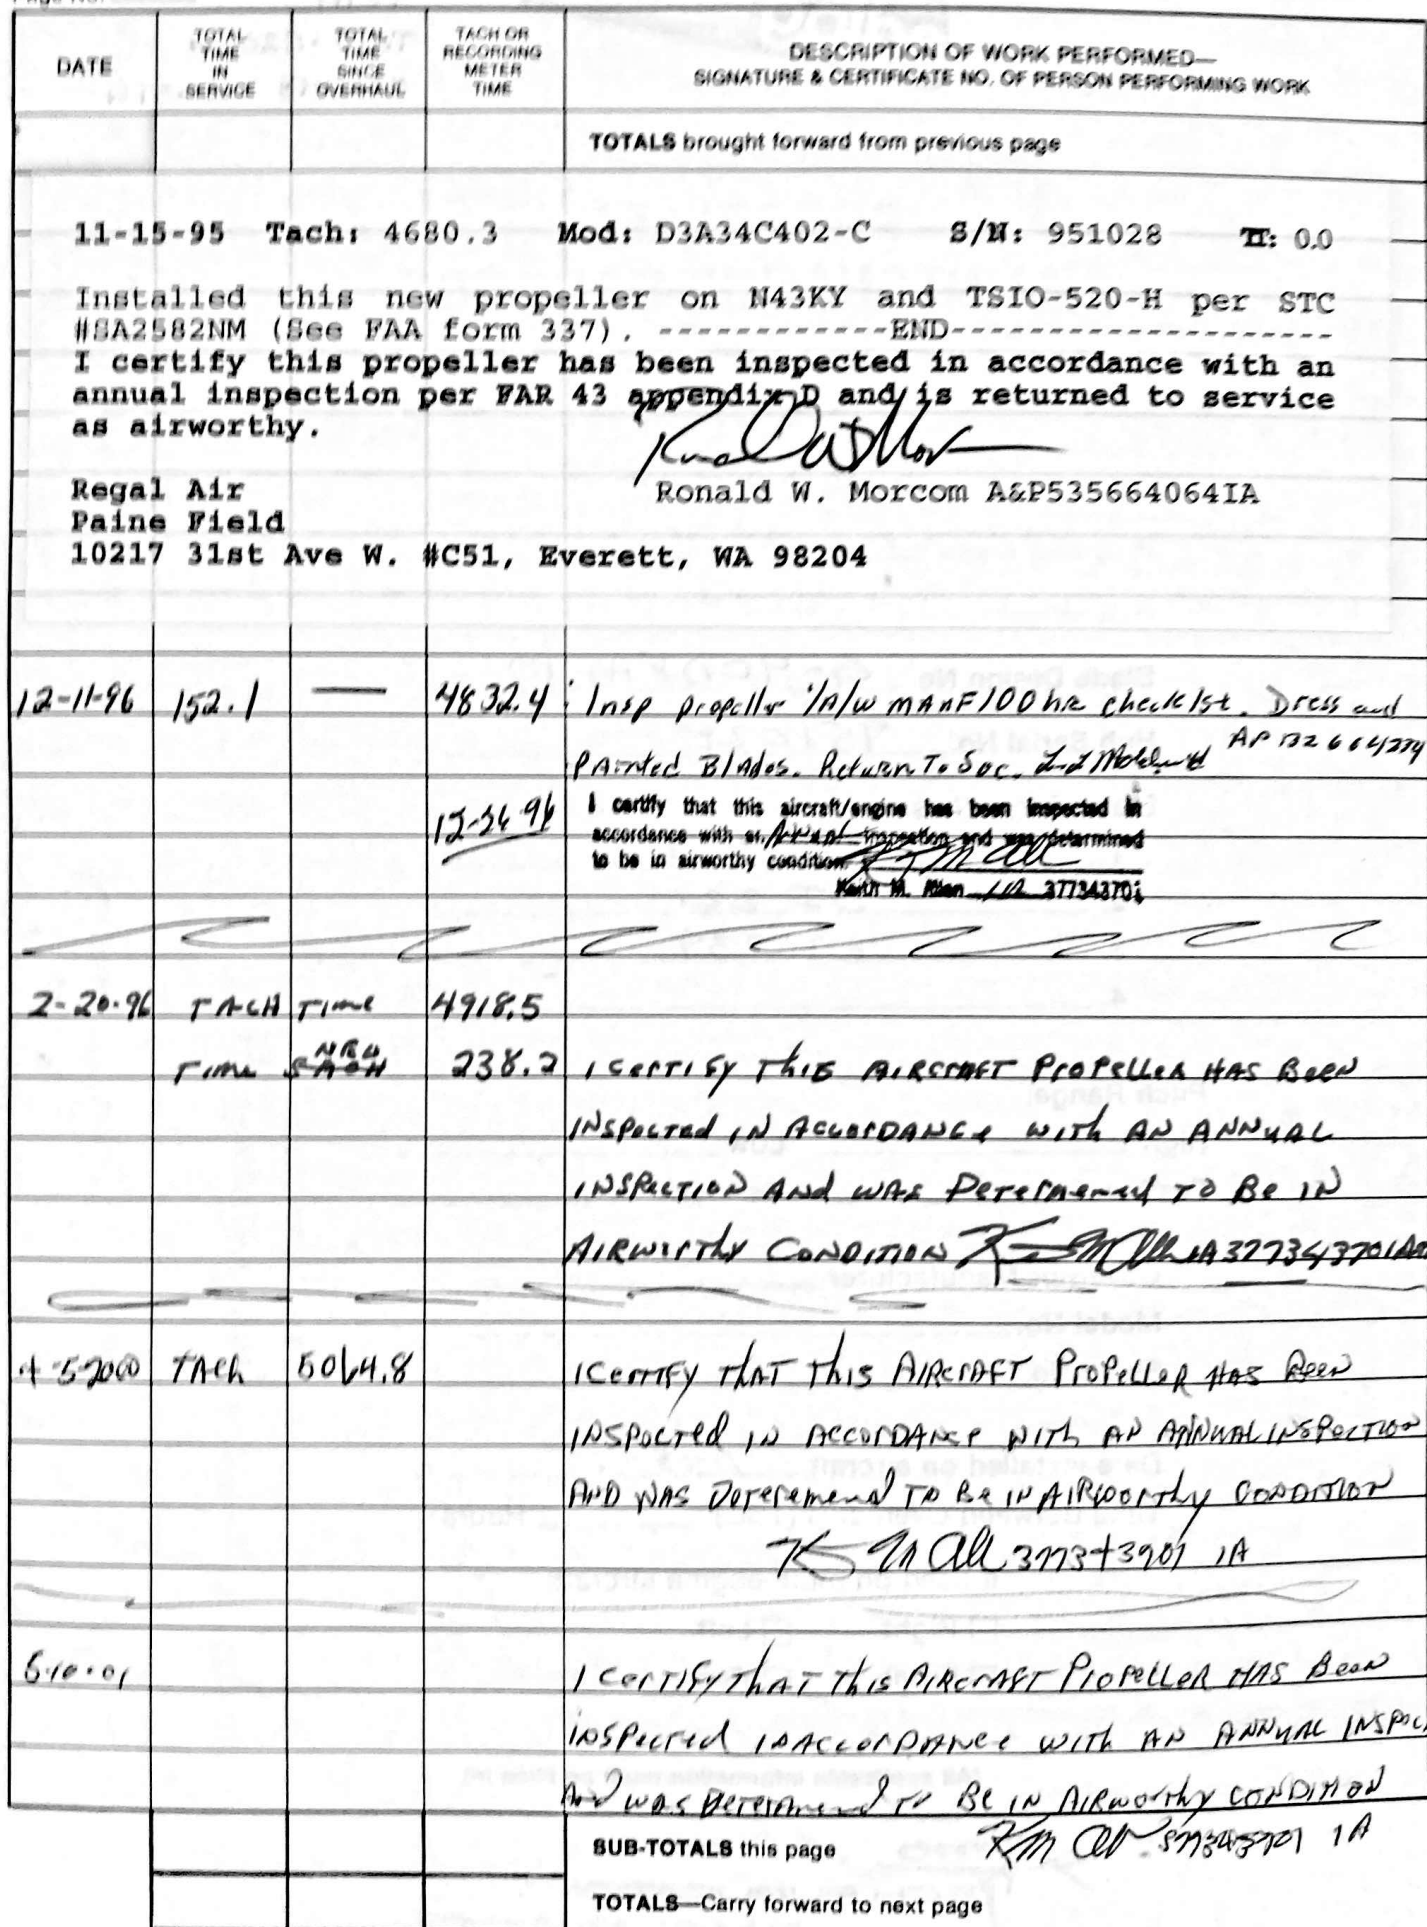 DATE
TOTAL TIME IN SERVICE
TOTAL TIME SINCE OVERHAUL
TACH OR RECORDING METER TIME
DESCRIPTION OF WORK PERFORMED—
SIGNATURE & CERTIFICATE NO. OF PERSON PERFORMING WORK
TOTALS brought forward from previous page
11-15-95 Tach: 4680.3 Mod: D3A34C402-C S/N: 951028 TT: 0.0
Installed this new propeller on N43KY and TSIO-520-H per STC
#SA2582NM (See FAA form 337). ------------END---------------------
I certify this propeller has been inspected in accordance with an
annual inspection per FAR 43 appendix D and is returned to service
as airworthy.
Regal Air Ronald W. Morcom A&P535664064IA
Paine Field
10217 31st Ave W. #C51, Everett, WA 98204
12-11-96 152.1 — 4832.4 Insp propeller I/A/W MANF 100 hr check lst. Dress and
Painted Blades. Return To Svc. AP
12-26-96 I certify that this aircraft/engine has been inspected in
accordance with an Annual inspection and was determined
to be in airworthy condition.
Keith M. Allen IA 377343701
2-20-96 TACH Time 4918.5
Time NEW 238.2 I Certify This AIRCRAFT PROPELLER HAS BEEN
INSPECTED IN ACCORDANCE WITH AN ANNUAL
INSPECTION And WAS Deteremened TO Be IN
AIRWORTHY CONDITION IA 377343701
4-5-2000 TACH 5064.8 I Certify THAT This AIRCRAFT PROPELLER HAS Been
INSPECTED IN ACCORDANCE WITH AN ANNUAL INSPECTION
AND WAS Deteremened TO Be IN AIRWORTHY CONDITION
IA
5-10-01 I Certify THAT This AIRCRAFT PROPELLER HAS Been
INSPECTED IN ACCORDANCE WITH AN ANNUAL INSPEC
And was Deteremened to BE IN AIRWORTHY CONDITION
SUB-TOTALS this page IA
TOTALS—Carry forward to next page